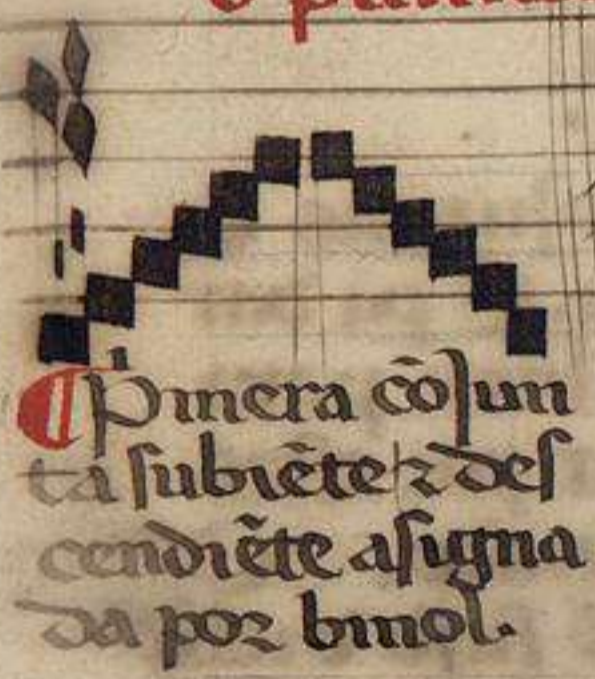 ¶ Pimera cõjun
ta subiẽte ⁊ des
cendiẽte asigna
da por bmol.